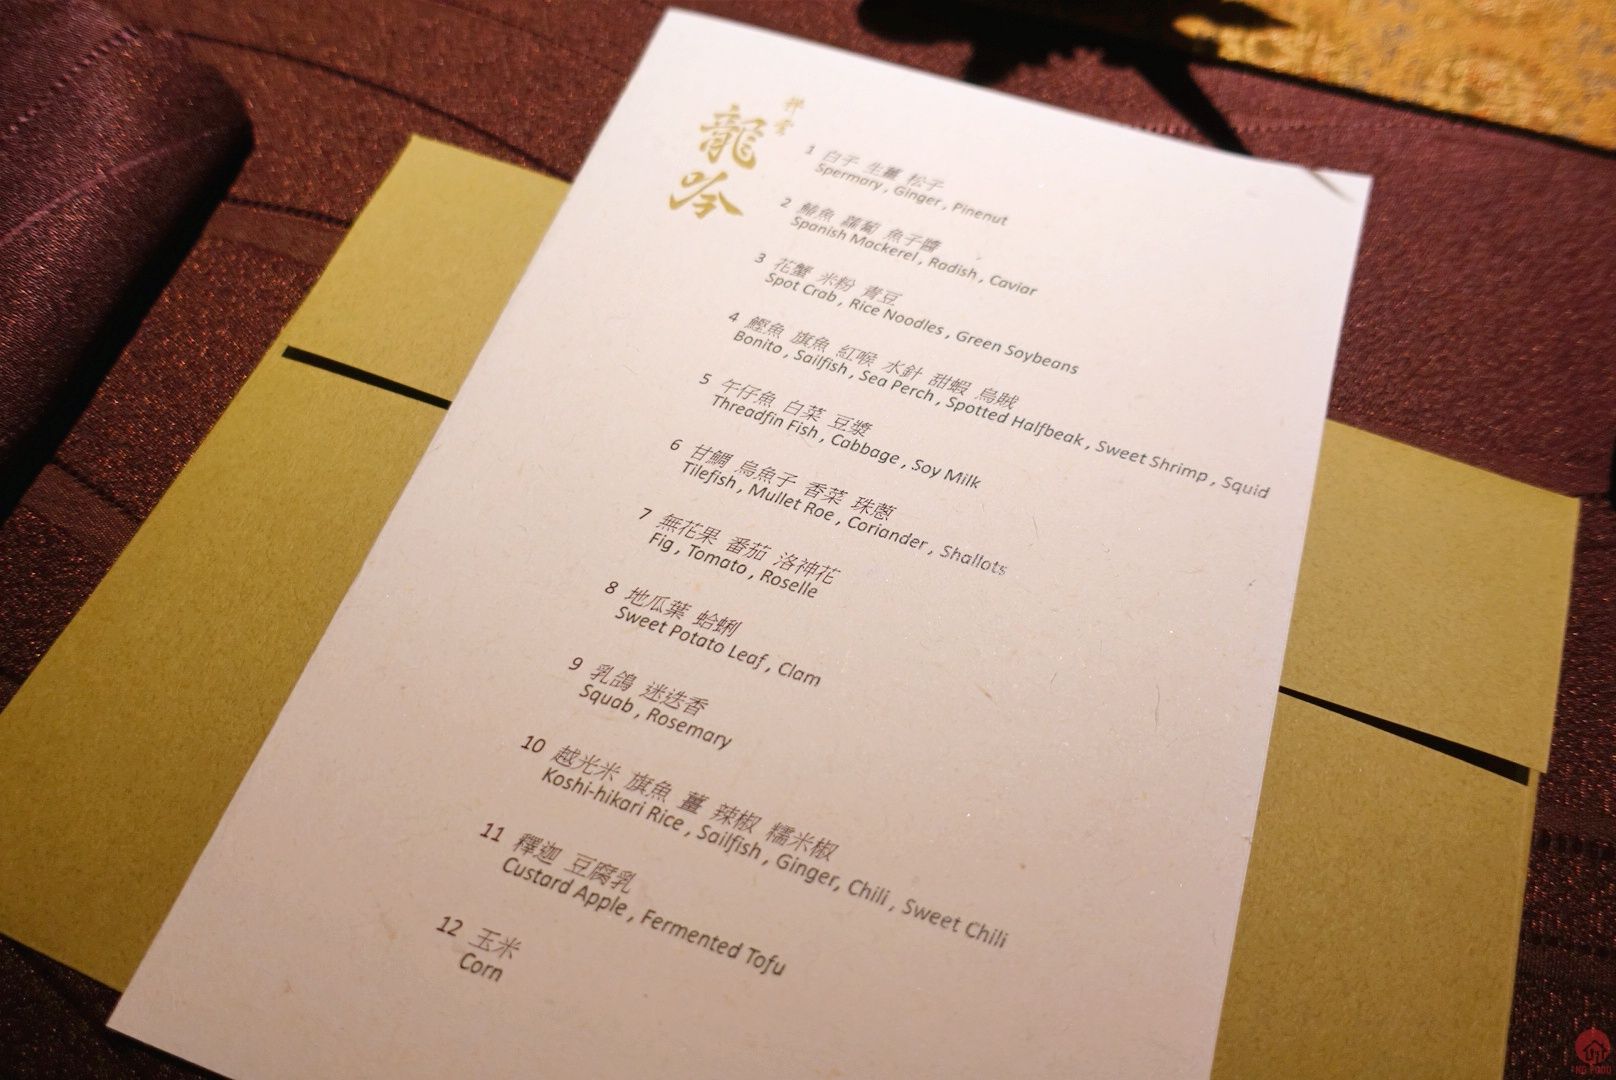 祥雲
龍吟
1 白子 生薑 松子
Spermary , Ginger , Pinenut
2 鰆魚 蘿蔔 魚子醬
Spanish Mackerel , Radish , Caviar
3 花蟹 米粉 青豆
Spot Crab , Rice Noodles , Green Soybeans
4 鰹魚 旗魚 紅喉 水針 甜蝦 烏賊
Bonito , Sailfish , Sea Perch , Spotted Halfbeak , Sweet Shrimp , Squid
5 午仔魚 白菜 豆漿
Threadfin Fish , Cabbage , Soy Milk
6 甘鯛 烏魚子 香菜 珠蔥
Tilefish , Mullet Roe , Coriander , Shallots
7 無花果 番茄 洛神花
Fig , Tomato , Roselle
8 地瓜葉 蛤蜊
Sweet Potato Leaf , Clam
9 乳鴿 迷迭香
Squab , Rosemary
10 越光米 旗魚 薑 辣椒 糯米椒
Koshi-hikari Rice , Sailfish , Ginger, Chili , Sweet Chili
11 釋迦 豆腐乳
Custard Apple , Fermented Tofu
12 玉米
Corn